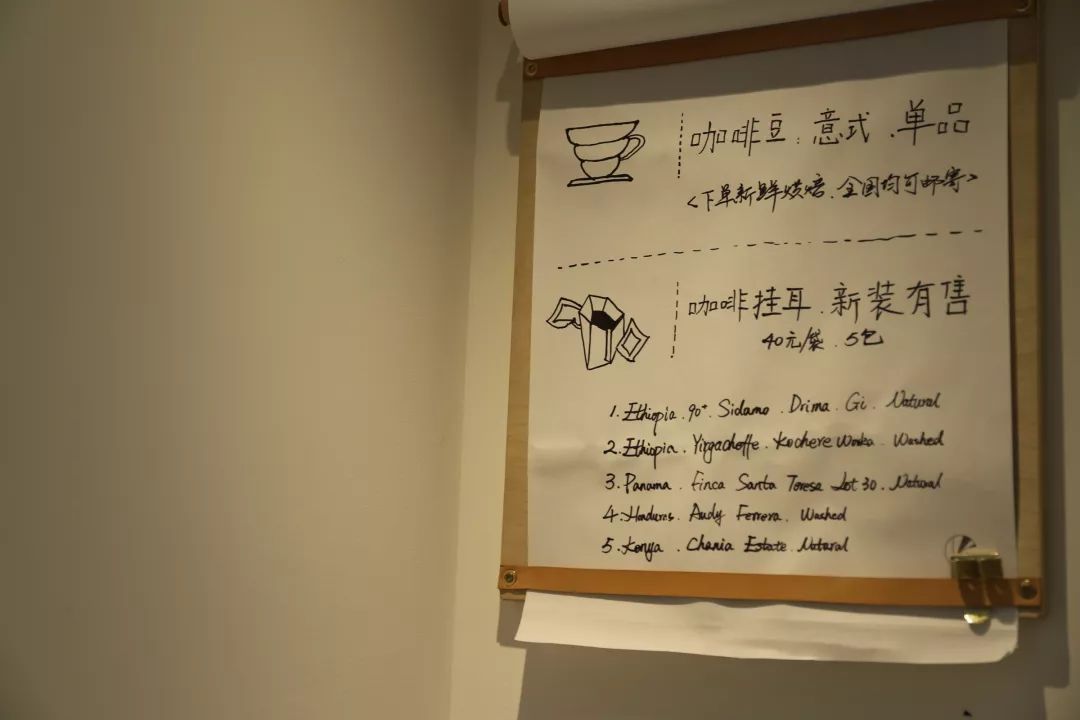 咖啡豆.意式.单品
<下单新鲜烘焙.全国均可邮寄>
咖啡挂耳.新装有售
40元/袋.5包
1.Ethiopia.90+.Sidamo.Drima.Gi.Natural
2.Ethiopia.Yirgacheffe.Kochere Worka.Washed
3.Panama.Finca Santa Teresa Lot 30.Natural
4.Honduras.Audy Ferrera.Washed
5.Kenya.Chania Estate.Natural